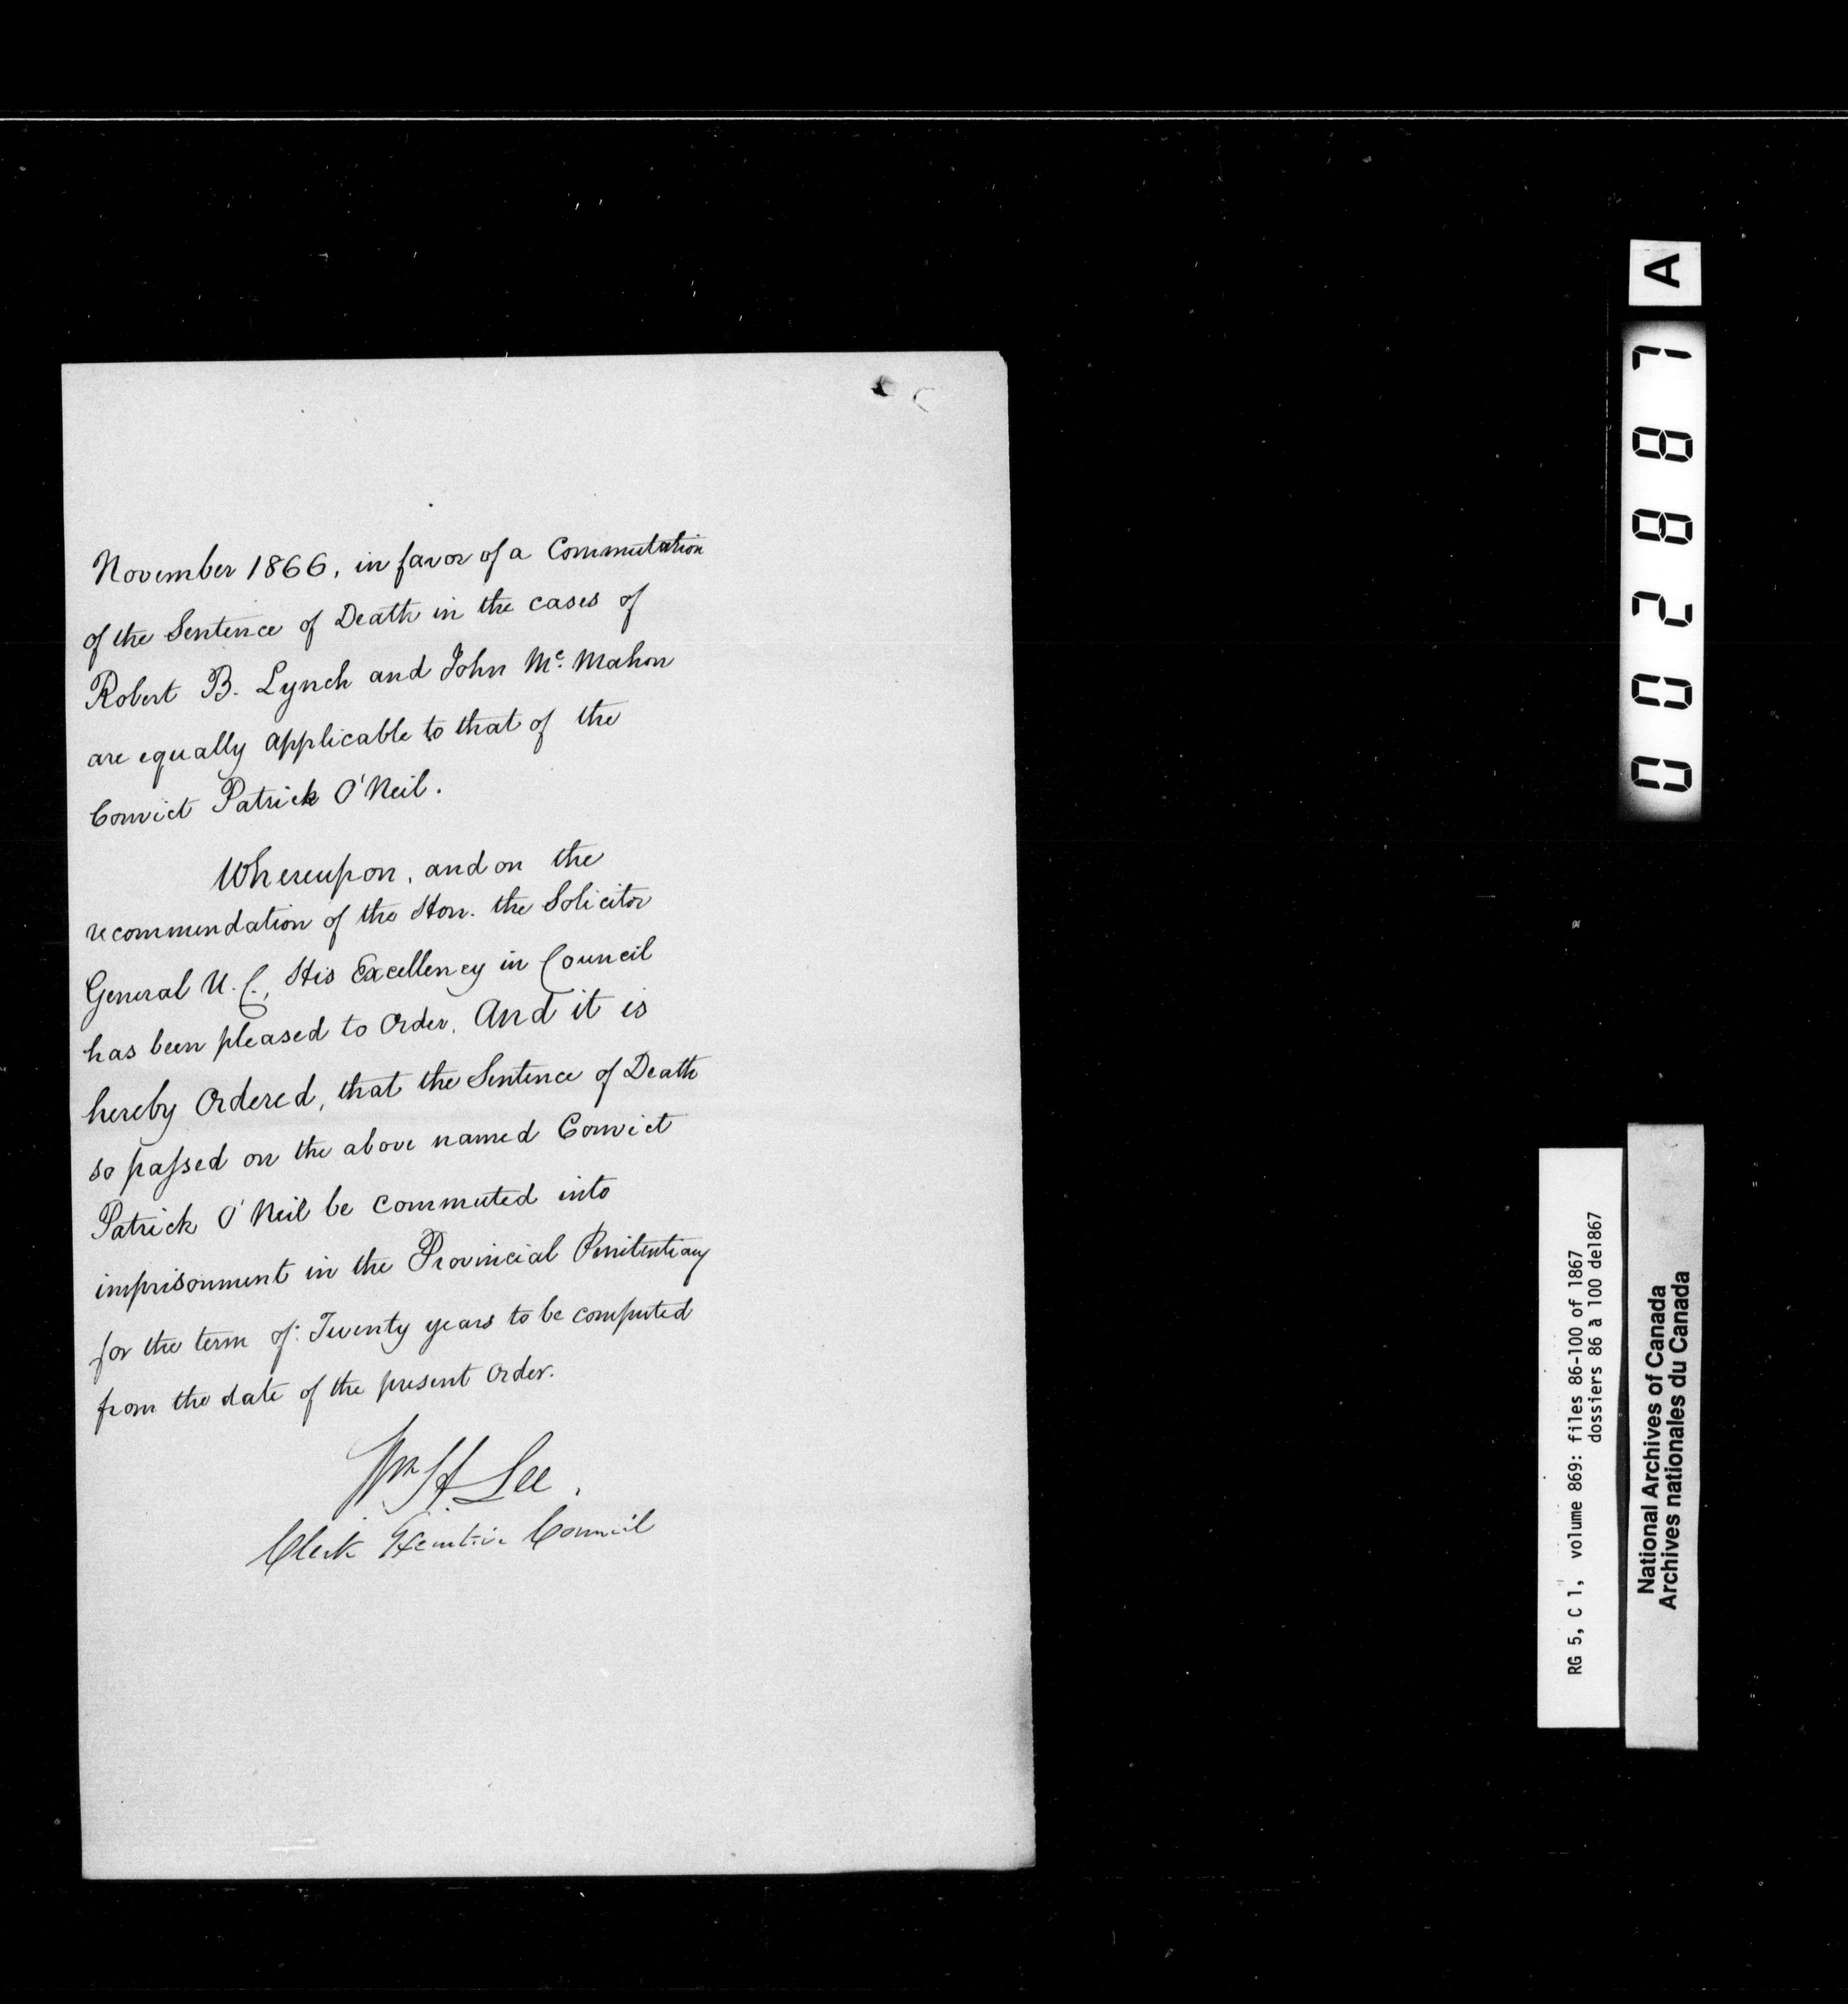 November 1866, in favor of a Commutation
of the Sentence of Death in the cases of
Robert B. Lynch and John Mc. Mahon
are equally applicable to that of the
Convict Patrick O'Neil.
Whereupon, and on the
recommendation of the Hon. the Solicitor
General U.C., His Excellency in Council
has been pleased to Order. And it is
hereby Ordered, that the Sentence of Death
so passed on the above named Convict
Patrick O'Neil be commuted into
imprisonment in the Provincial Penitentiary
for the term of Twenty years to be computed
from the date of the present Order.
Wm H. Lee.
Clerk Executive Council
A
002887
RG 5, C 1, volume 869: files 86-100 of 1867
dossiers 86 à 100 de1867
National Archives of Canada
Archives nationales du Canada